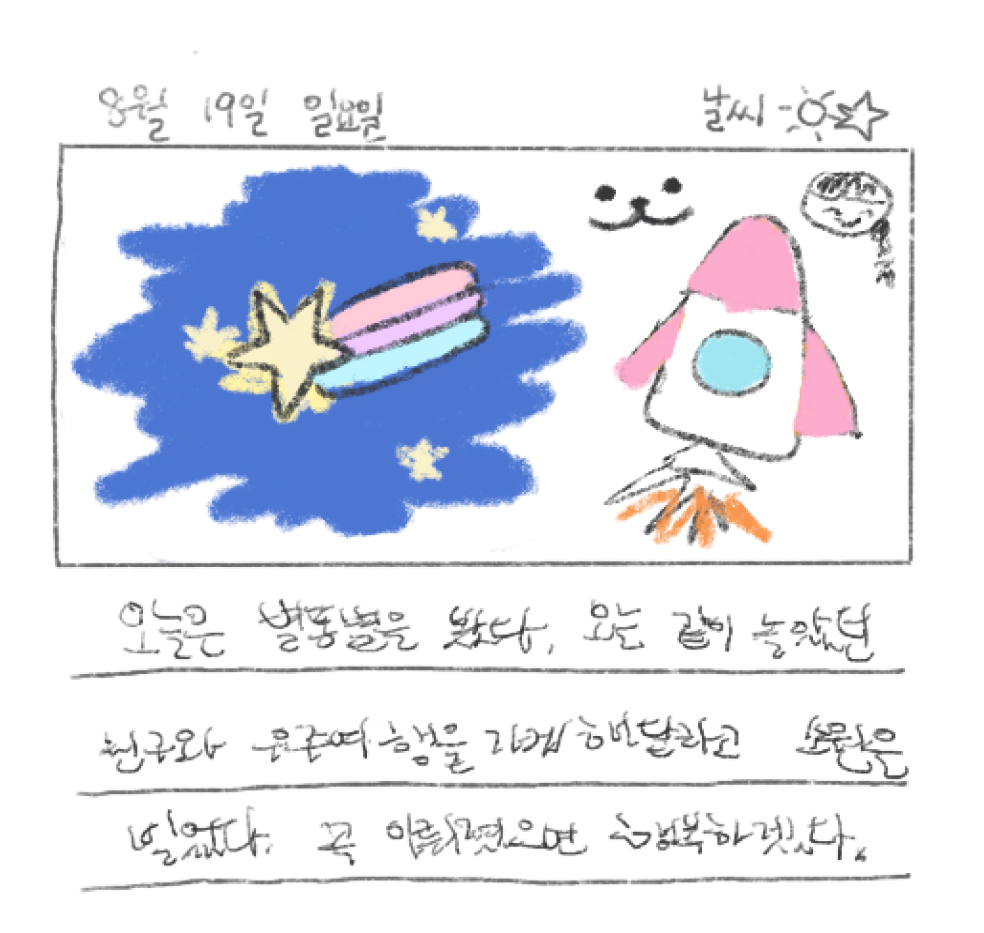 8월 19일 일요일
날씨 -
오늘은 별똥별을 봤다, 오늘 같이 놀았던
친구와 우주여행을 가게 해달라고 소원을
빌었다. 꼭 이뤄졌으면 행복하겠다.